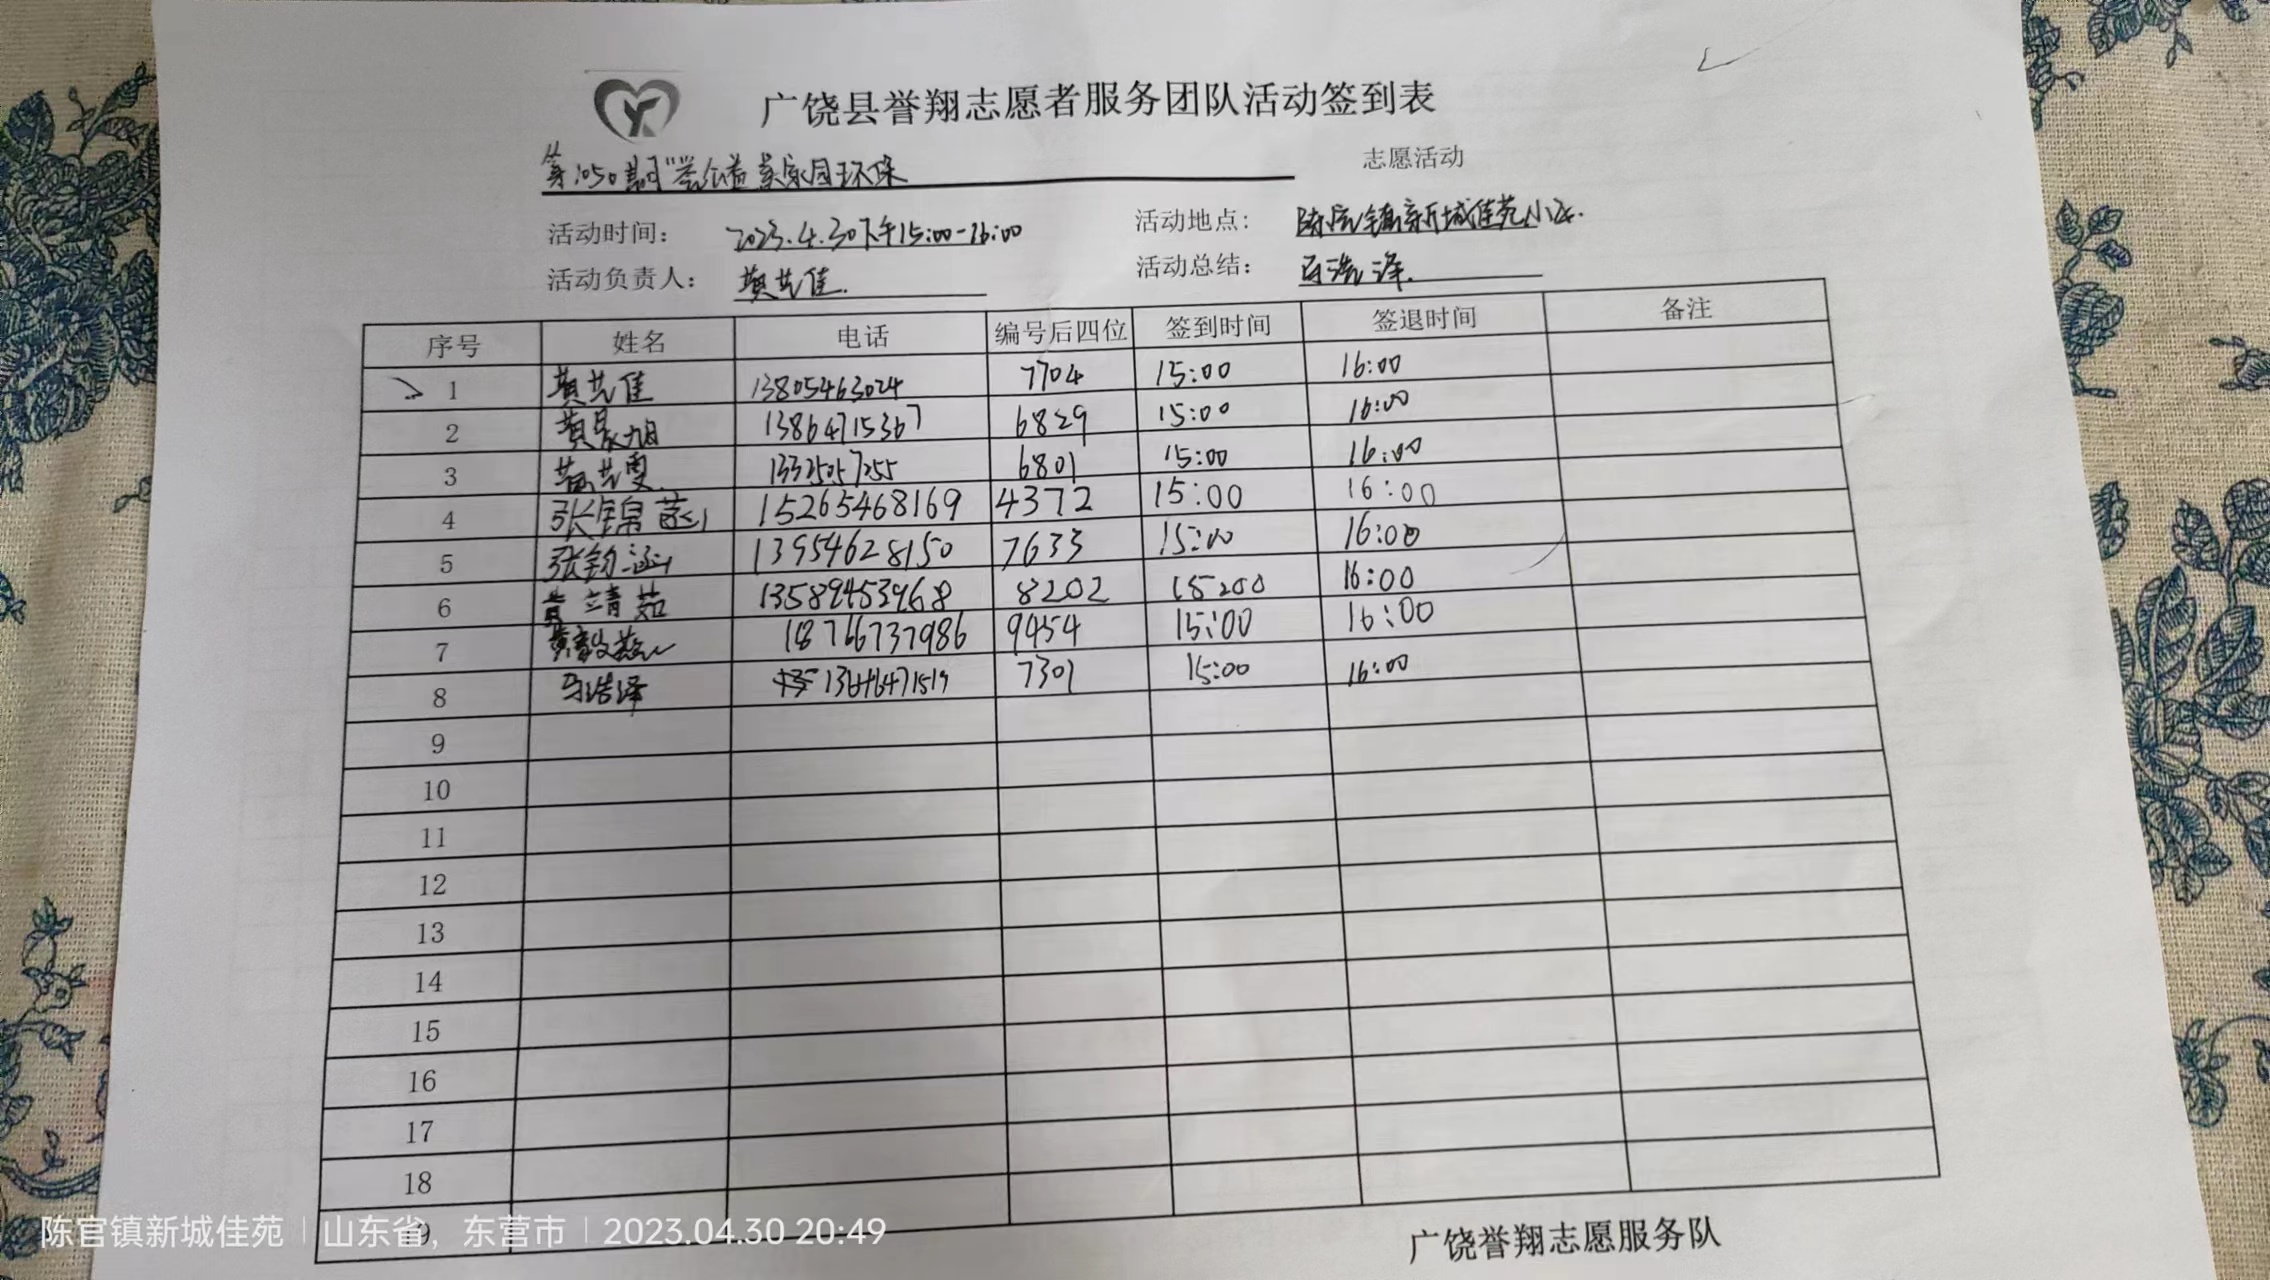 广饶县誉翔志愿者服务团队活动签到表
第1050期"誉公益 美家园环保 志愿活动
活动时间： 2023.4.30下午15:00-16:00 活动地点： 陈官镇新城佳苑小区.
活动负责人： 黄艺佳. 活动总结： 马浩泽.
序号 姓名 电话 编号后四位 签到时间 签退时间 备注
1 黄艺佳 13805463024 7704 15:00 16:00
2 黄昱旭 13864715367 6829 15:00 16:00
3 黄艺雯 13325057255 6801 15:00 16:00
4 张锦菡 15265468169 4372 15:00 16:00
5 张钧涵 13954628150 7633 15:00 16:00
6 黄靖茹 13589453968 8202 15:00 16:00
7 18766737986 9454 15:00 16:00
8 马浩泽 7301 15:00 16:00
9
10
11
12
13
14
15
16
17
18
19
广饶誉翔志愿服务队
陈官镇新城佳苑 | 山东省，东营市 | 2023.04.30 20:49